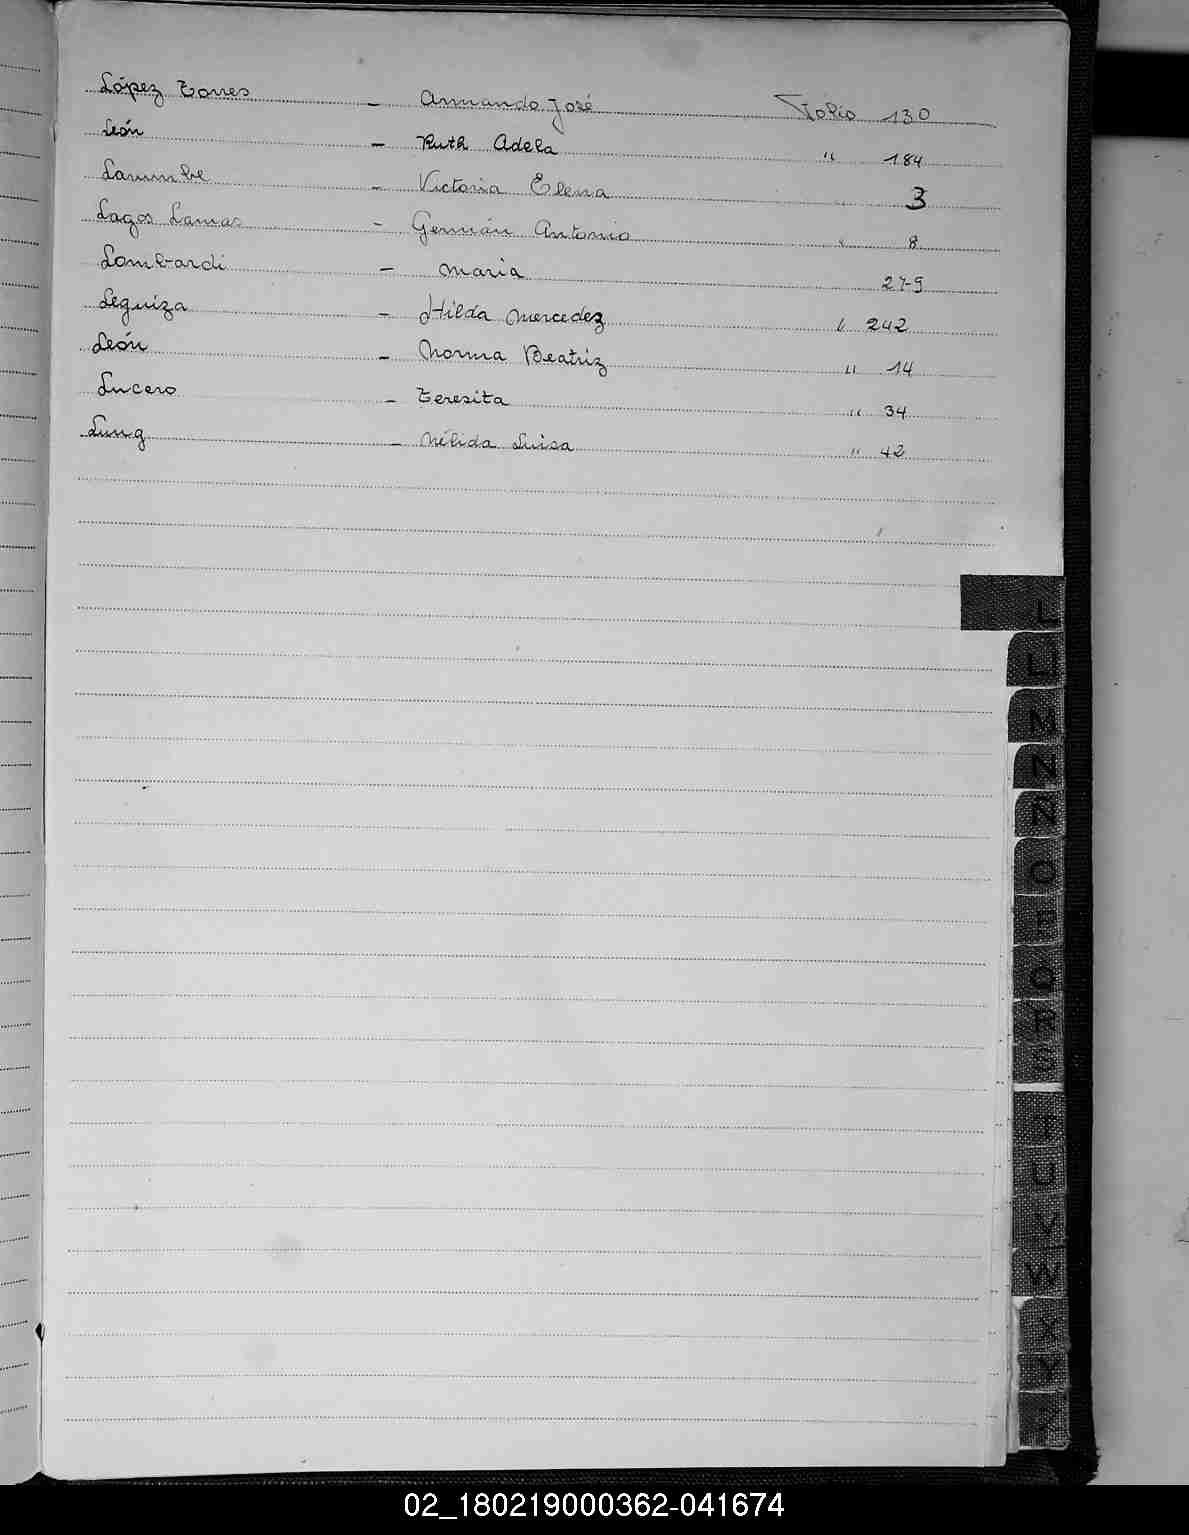 López Torres - Armando José Folio 130
León - Ruth Adela " 184
Larumbe - Victoria Elena " 3
Lagos Lamas - Germán Antonio " 8
Lombardi - Maria 279
Leguiza - Hilda Mercedez " 242
León - Norma Beatriz " 14
Lucero - Teresita " 34
Lung - Nélida Luisa " 42
L
L
M
N
Ñ
O
P
Q
R
S
T
U
V
W
X
Y
Z
02_180219000362-041674